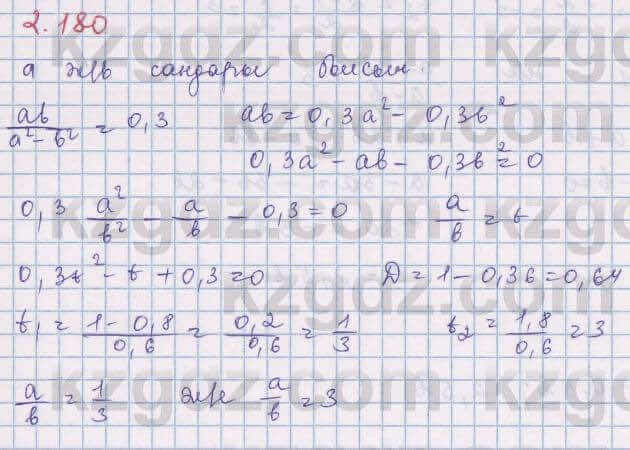 2.180
а және сандары болсын.
ab/(a²-b²) = 0,3   ab = 0,3a² - 0,3b²
0,3a² - ab - 0,3b² = 0
0,3 a²/b² - a/b - 0,3 = 0   a/b = t
0,3t² - t + 0,3 = 0   D = 1 - 0,36 = 0,64
t₁ = (1 - 0,8)/0,6 = 0,2/0,6 = 1/3   t₂ = 1,8/0,6 = 3
a/b = 1/3   a/b = 3
kzgdz.com